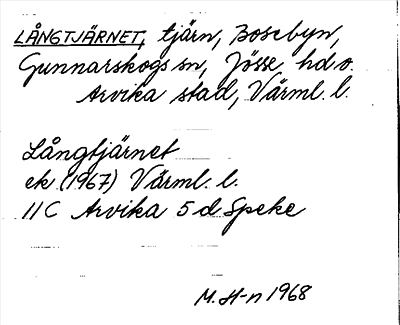 LÅNGTJÄRNET, tjärn, Bosebyn,
Gunnarskogs sn, Jösse hd o.
Arvika stad, Värml. l.
Långtjärnet
ek (1967) Värml. l.
11C Arvika 5 d Speke
M. H-n 1968